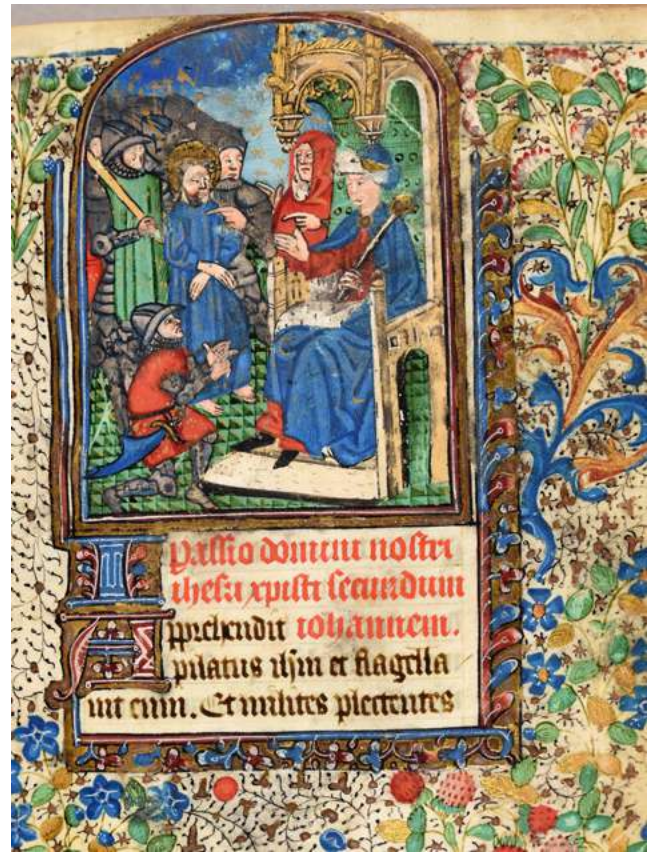 Passio domini nostri
ihesu xpisti secundum
Apprehendit iohannem.
pilatus ihm et flagella
uit eum. Et milites plectentes